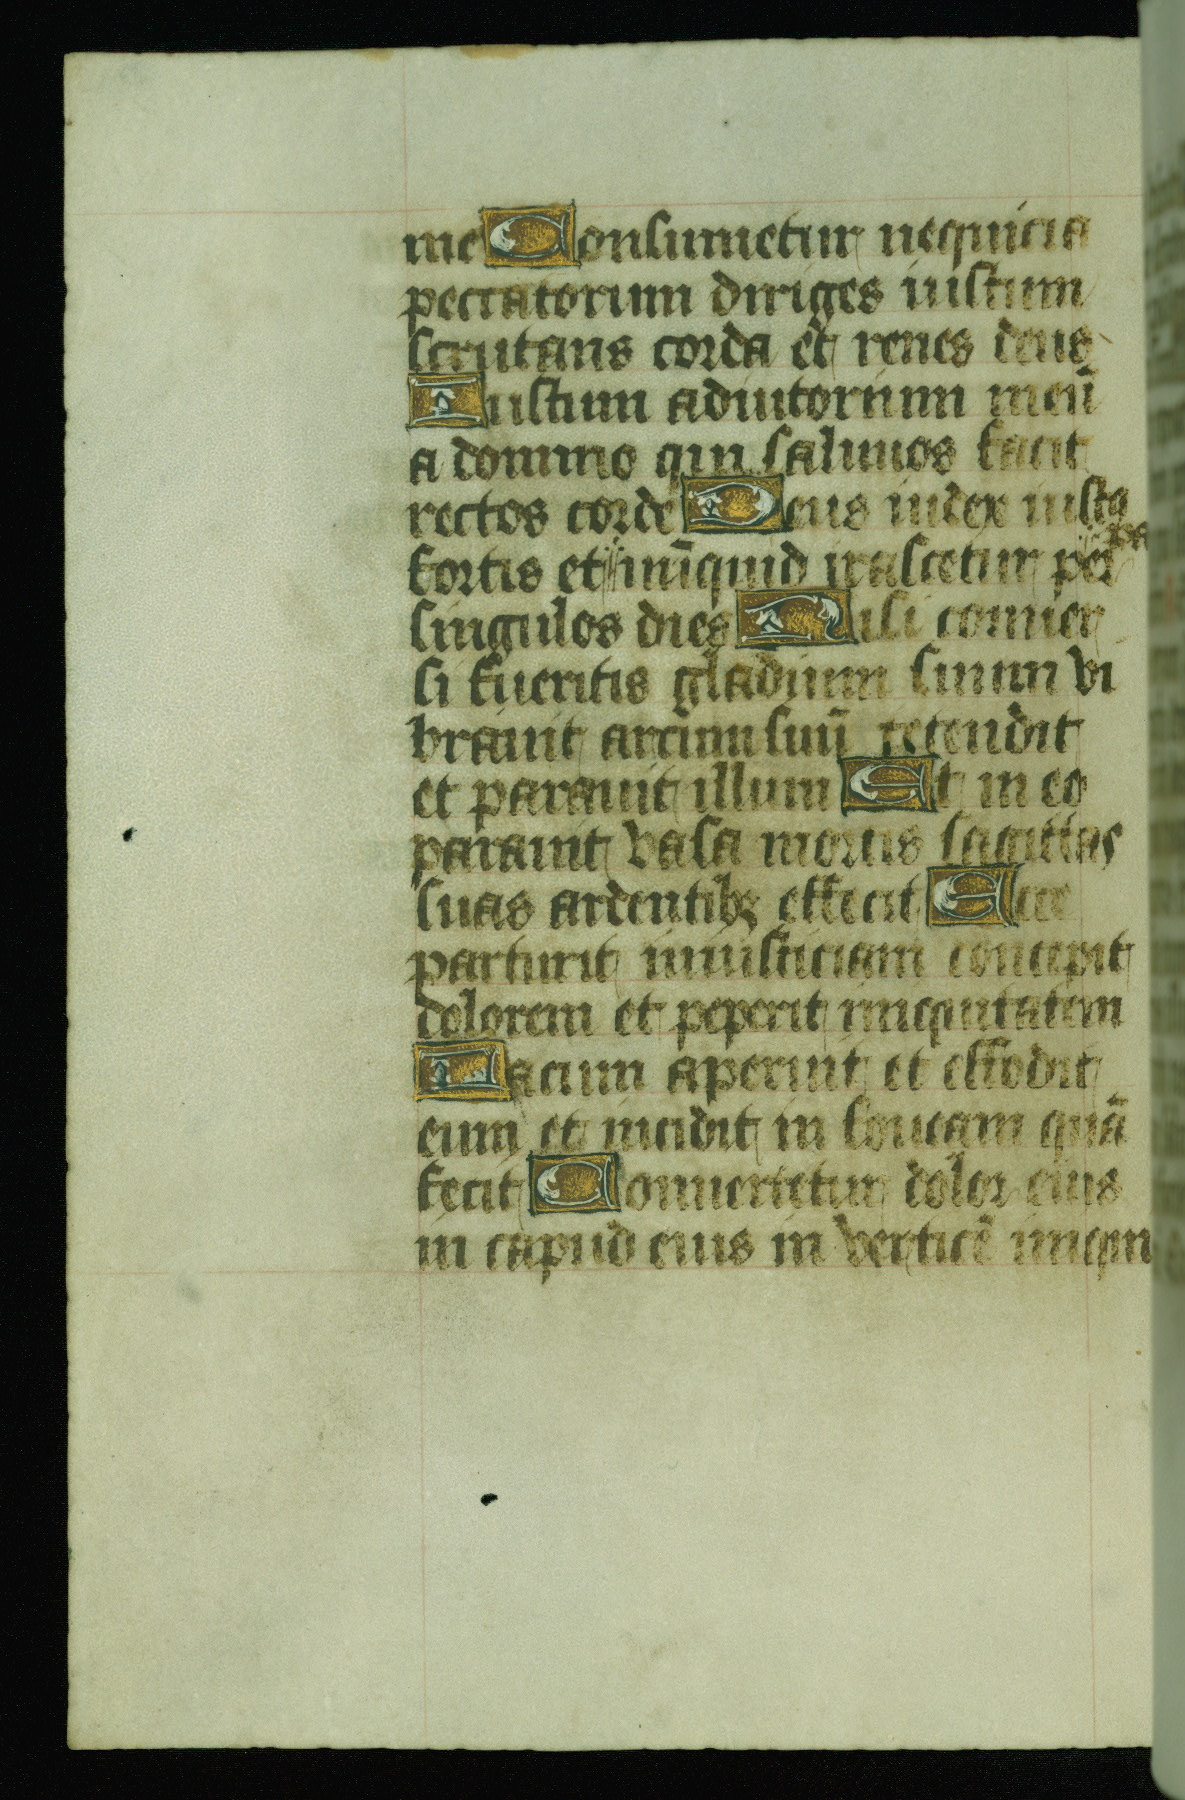 me Consumetur nequicia
peccatorum diriges iustum
scrutans corda et renes deus
Iustum adiutorium meū
a domino qui saluuos facit
rectos corde Deus iudex iustq
fortis et nūquid irascetur per
singulos dies Nisi conuer
si fueritis gladium suum vi
brauit arcum suū tetendit
et parauit illum Et in eo
parauit vasa mortis sagittas
suas ardentibꝫ effecit Ecce
parturit iniusticiam concepit
dolorem et peperit iniquitatem
Lacum aperuit et effodit
eum et incidit in foueam quā
fecit Conuertetur dolor eius
in capud eius in verticē iniqui